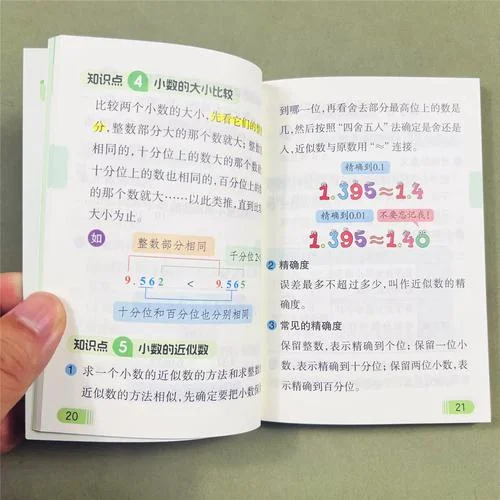 知识点 4 小数的大小比较
比较两个小数的大小,先看它们的整
分,整数部分大的那个数就大;整数
相同的,十分位上的数大的那个数
十分位上的数也相同的,百分位上的
的那个数就大……以此类推,直到比
大小为止。
如
整数部分相同
千分位2<
9.562 < 9.565
十分位和百分位也分别相同
知识点 5 小数的近似数
1 求一个小数的近似数的方法和求整数
近似数的方法相似,先确定要把小数保
20
到哪一位,再看舍去部分最高位上的数是
几,然后按照“四舍五入”法确定是舍还是
入,近似数与原数用“≈”连接。
精确到0.1
1.395≈1.4
精确到0.01 不要忘记我!
1.395≈1.40
2 精确度
误差最多不超过多少,叫作近似数的精
确度。
3 常见的精确度
保留整数,表示精确到个位;保留一位小
数,表示精确到十分位;保留两位小数,表
示精确到百分位。
21